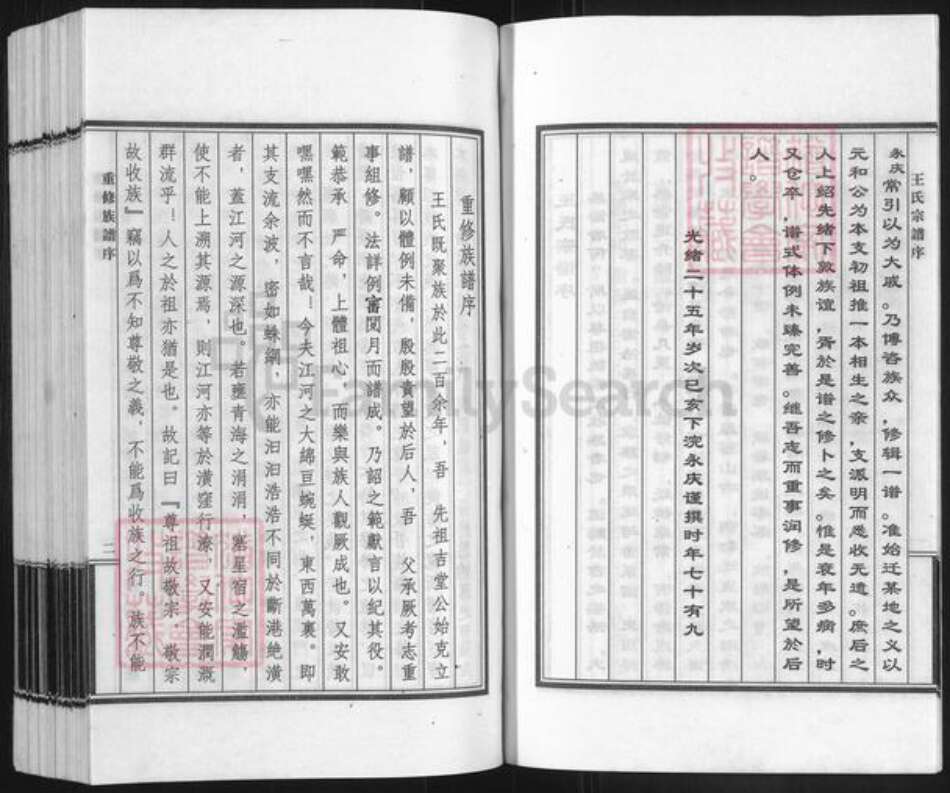 王氏宗譜序
永庆常引以为大戚。乃博咨族众，修辑一谱。准始迁某地之义以
元和公为本支初祖推一本相生之亲，支派明而悉收无遗。庶后之
人上绍先绪下敦族谊，胥於是谱之修卜之矣。惟是衰年多病，时
又仓卒，谱式体例未臻完善。继吾志而重事润修，是所望於后
人。
光绪二十五年岁次己亥下浣永庆谨撰时年七十有九
重修族譜序
王氏既聚族於此二百余年，吾 先祖吉堂公始克立
譜，顧以體例未備，殷殷責望於后人，吾 父承厥考志重
事組修。法詳例審閱月而譜成。乃詔之範獻言以紀其役。
範恭承 严命，上體祖心，而樂與族人觀厥成也。又安敢
嘿嘿然而不言哉！今夫江河之大綿亘蜿蜒，東西萬裏。即
其支流余波，密如蛛網，亦能汩汩浩浩不同於斷港绝潢
者，蓋江河之源深也。若壅青海之涓涓，塞星宿之濫觴，
使不能上溯其源焉，則江河亦等於潢窪行潦，又安能潤溉
群流乎！人之於祖亦猶是也。故記曰『尊祖故敬宗。敬宗
故收族』竊以爲不知尊敬之義，不能爲收族之行。族不能
重修族譜序
二
FamilySearch